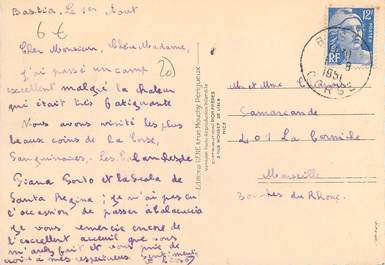 Bastia, Le 1er Aout
6 €
Cher Monsieur, Chère Madame,
J'ai passé un camp
20
excellent malgré la chaleur
qui était très fatigante
Nous avons visité les plus
beaux coins de la Corse,
Sanguinaires. Les Calanches de
Piana Porto et la Scala de
Santa Regina; je n'ai pas eu
l'occasion de passer à
Je vous remercie encore de
l'excellent accueil que vous
m'avez fait et vous prie de
croire à mes respectueux sentiments
12F
POSTES
RF
1951
CORSE
M et Mme
Samarcande
401 La Corniche
Marseille
Bouches du Rhône.